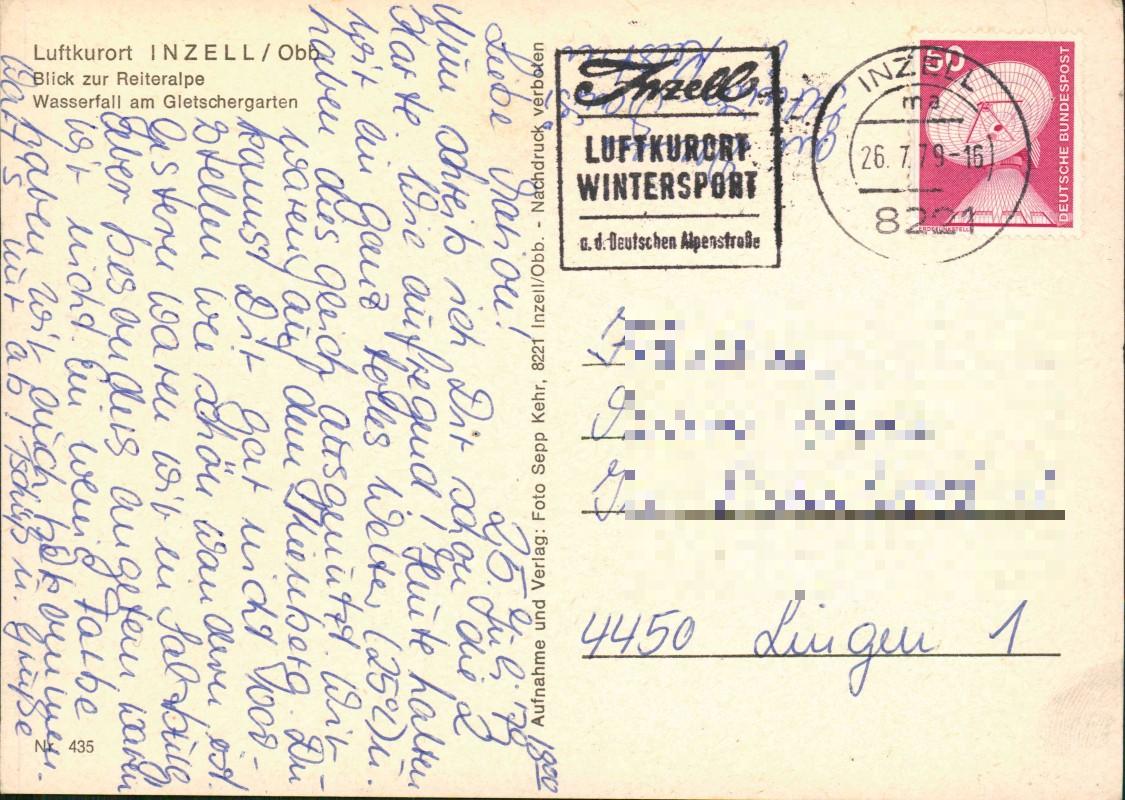 Luftkurort INZELL / Obb.
Blick zur Reiteralpe
Wasserfall am Gletschergarten
25. Juli 79
18⁰⁰
Liebe Marion!
Nun schreib ich Dir schon die 2
Karte. Wie aufregend! Heute hatten
wir ein ganz tolles Wetter (25°) u.
haben dies gleich ausgenutzt. Wir
waren auf dem Thienberg. Du
kannst Dir gar nicht vor-
stellen wie schön wandern ist.
Gestern waren wir in Salzburg
aber besonders angetan waren
wir nicht. Ein wenig Farbe
haben wir auch bekommen.
Tschüß u. Grüße
Nr. 435
Aufnahme und Verlag: Foto Sepp Kehr, 8221 Inzell/Obb. - Nachdruck verboten
Inzell
LUFTKURORT
WINTERSPORT
a. d. Deutschen Alpenstraße
INZELL
ma
26. 7. 79 - 16
8221
50
DEUTSCHE BUNDESPOST
ERDEFUNKSTELLE
4450 Lingen 1